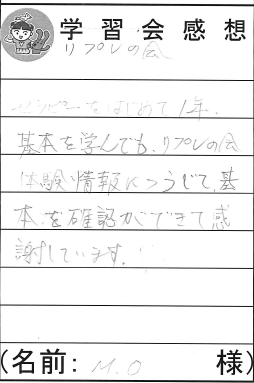 学習会感想
リプレの会
をはじめて1年.
基本を学んでも、リプレの会
体験、情報につうじて、基
本を確認ができて感
謝しています.
(名前: M.O 様)